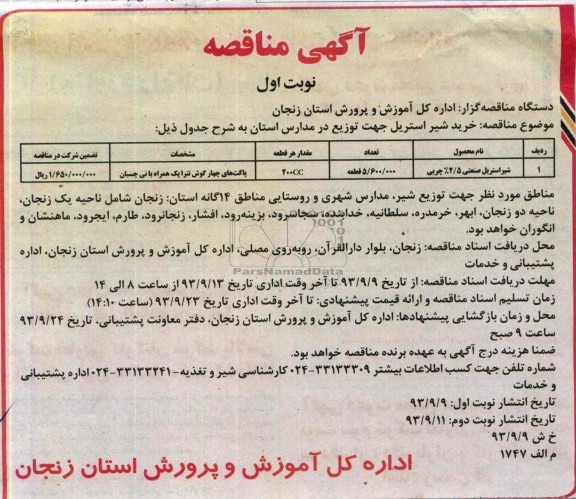 آگهی مناقصه
نوبت اول
دستگاه مناقصه‌گزار: اداره کل آموزش و پرورش استان زنجان
موضوع مناقصه: خرید شیر استریل جهت توزیع در مدارس استان به شرح جدول ذیل:
ردیف نام محصول تعداد مقدار هر قطعه مشخصات تضمین شرکت در مناقصه
۱ شیر استریل صنعتی ۲/۵٪ چربی ۵/۶۰۰/۰۰۰ قطعه ۲۰۰CC پاکت‌های چهار گوش تتراپک همراه با نی چسبان ۱/۶۵۰/۰۰۰/۰۰۰ ریال
مناطق مورد نظر جهت توزیع شیر، مدارس شهری و روستایی مناطق ۱۴گانه استان: زنجان شامل ناحیه یک زنجان،
ناحیه دو زنجان، ابهر، خرمدره، سلطانیه، خدابنده، سجاسرود، بزینه‌رود، افشار، زنجانرود، طارم، ایجرود، ماهنشان و
انگوران خواهد بود.
محل دریافت اسناد مناقصه: زنجان، بلوار دارالقرآن، روبه‌روی مصلی، اداره کل آموزش و پرورش استان زنجان، اداره
پشتیبانی و خدمات
ParsNamadData
مهلت دریافت اسناد مناقصه: از تاریخ ۹۳/۹/۹ تا آخر وقت اداری تاریخ ۹۳/۹/۱۳ از ساعت ۸ الی ۱۴
زمان تسلیم اسناد مناقصه و ارائه قیمت پیشنهادی: تا آخر وقت اداری تاریخ ۹۳/۹/۲۳ (ساعت ۱۴:۱۰)
محل و زمان بازگشایی پیشنهادها: اداره کل آموزش و پرورش استان زنجان، دفتر معاونت پشتیبانی، تاریخ ۹۳/۹/۲۴
ساعت ۹ صبح
ضمنا هزینه درج آگهی به عهده برنده مناقصه خواهد بود.
شماره تلفن جهت کسب اطلاعات بیشتر ۳۳۱۳۳۳۰۹-۰۲۴ کارشناسی شیر و تغذیه - ۳۳۱۳۳۲۴۱-۰۲۴ اداره پشتیبانی
و خدمات
تاریخ انتشار نوبت اول: ۹۳/۹/۹
تاریخ انتشار نوبت دوم: ۹۳/۹/۱۱
خ ش ۹۳/۹/۹
م الف ۱۷۴۷
اداره کل آموزش و پرورش استان زنجان